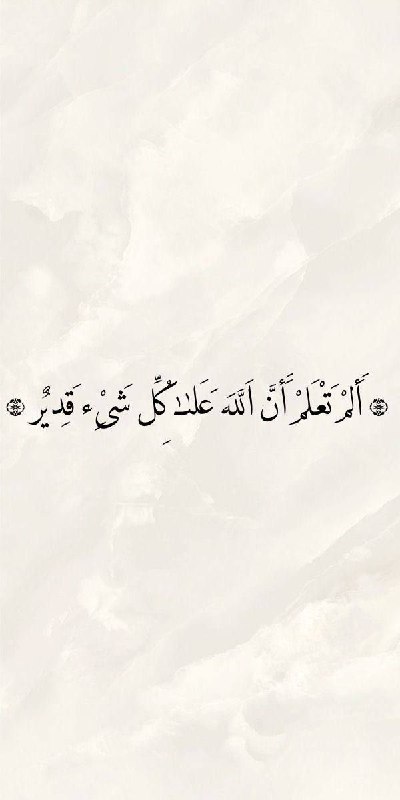 أَلَمْ تَعْلَمْ أَنَّ اللَّهَ عَلَىٰ كُلِّ شَيْءٍ قَدِيرٌ